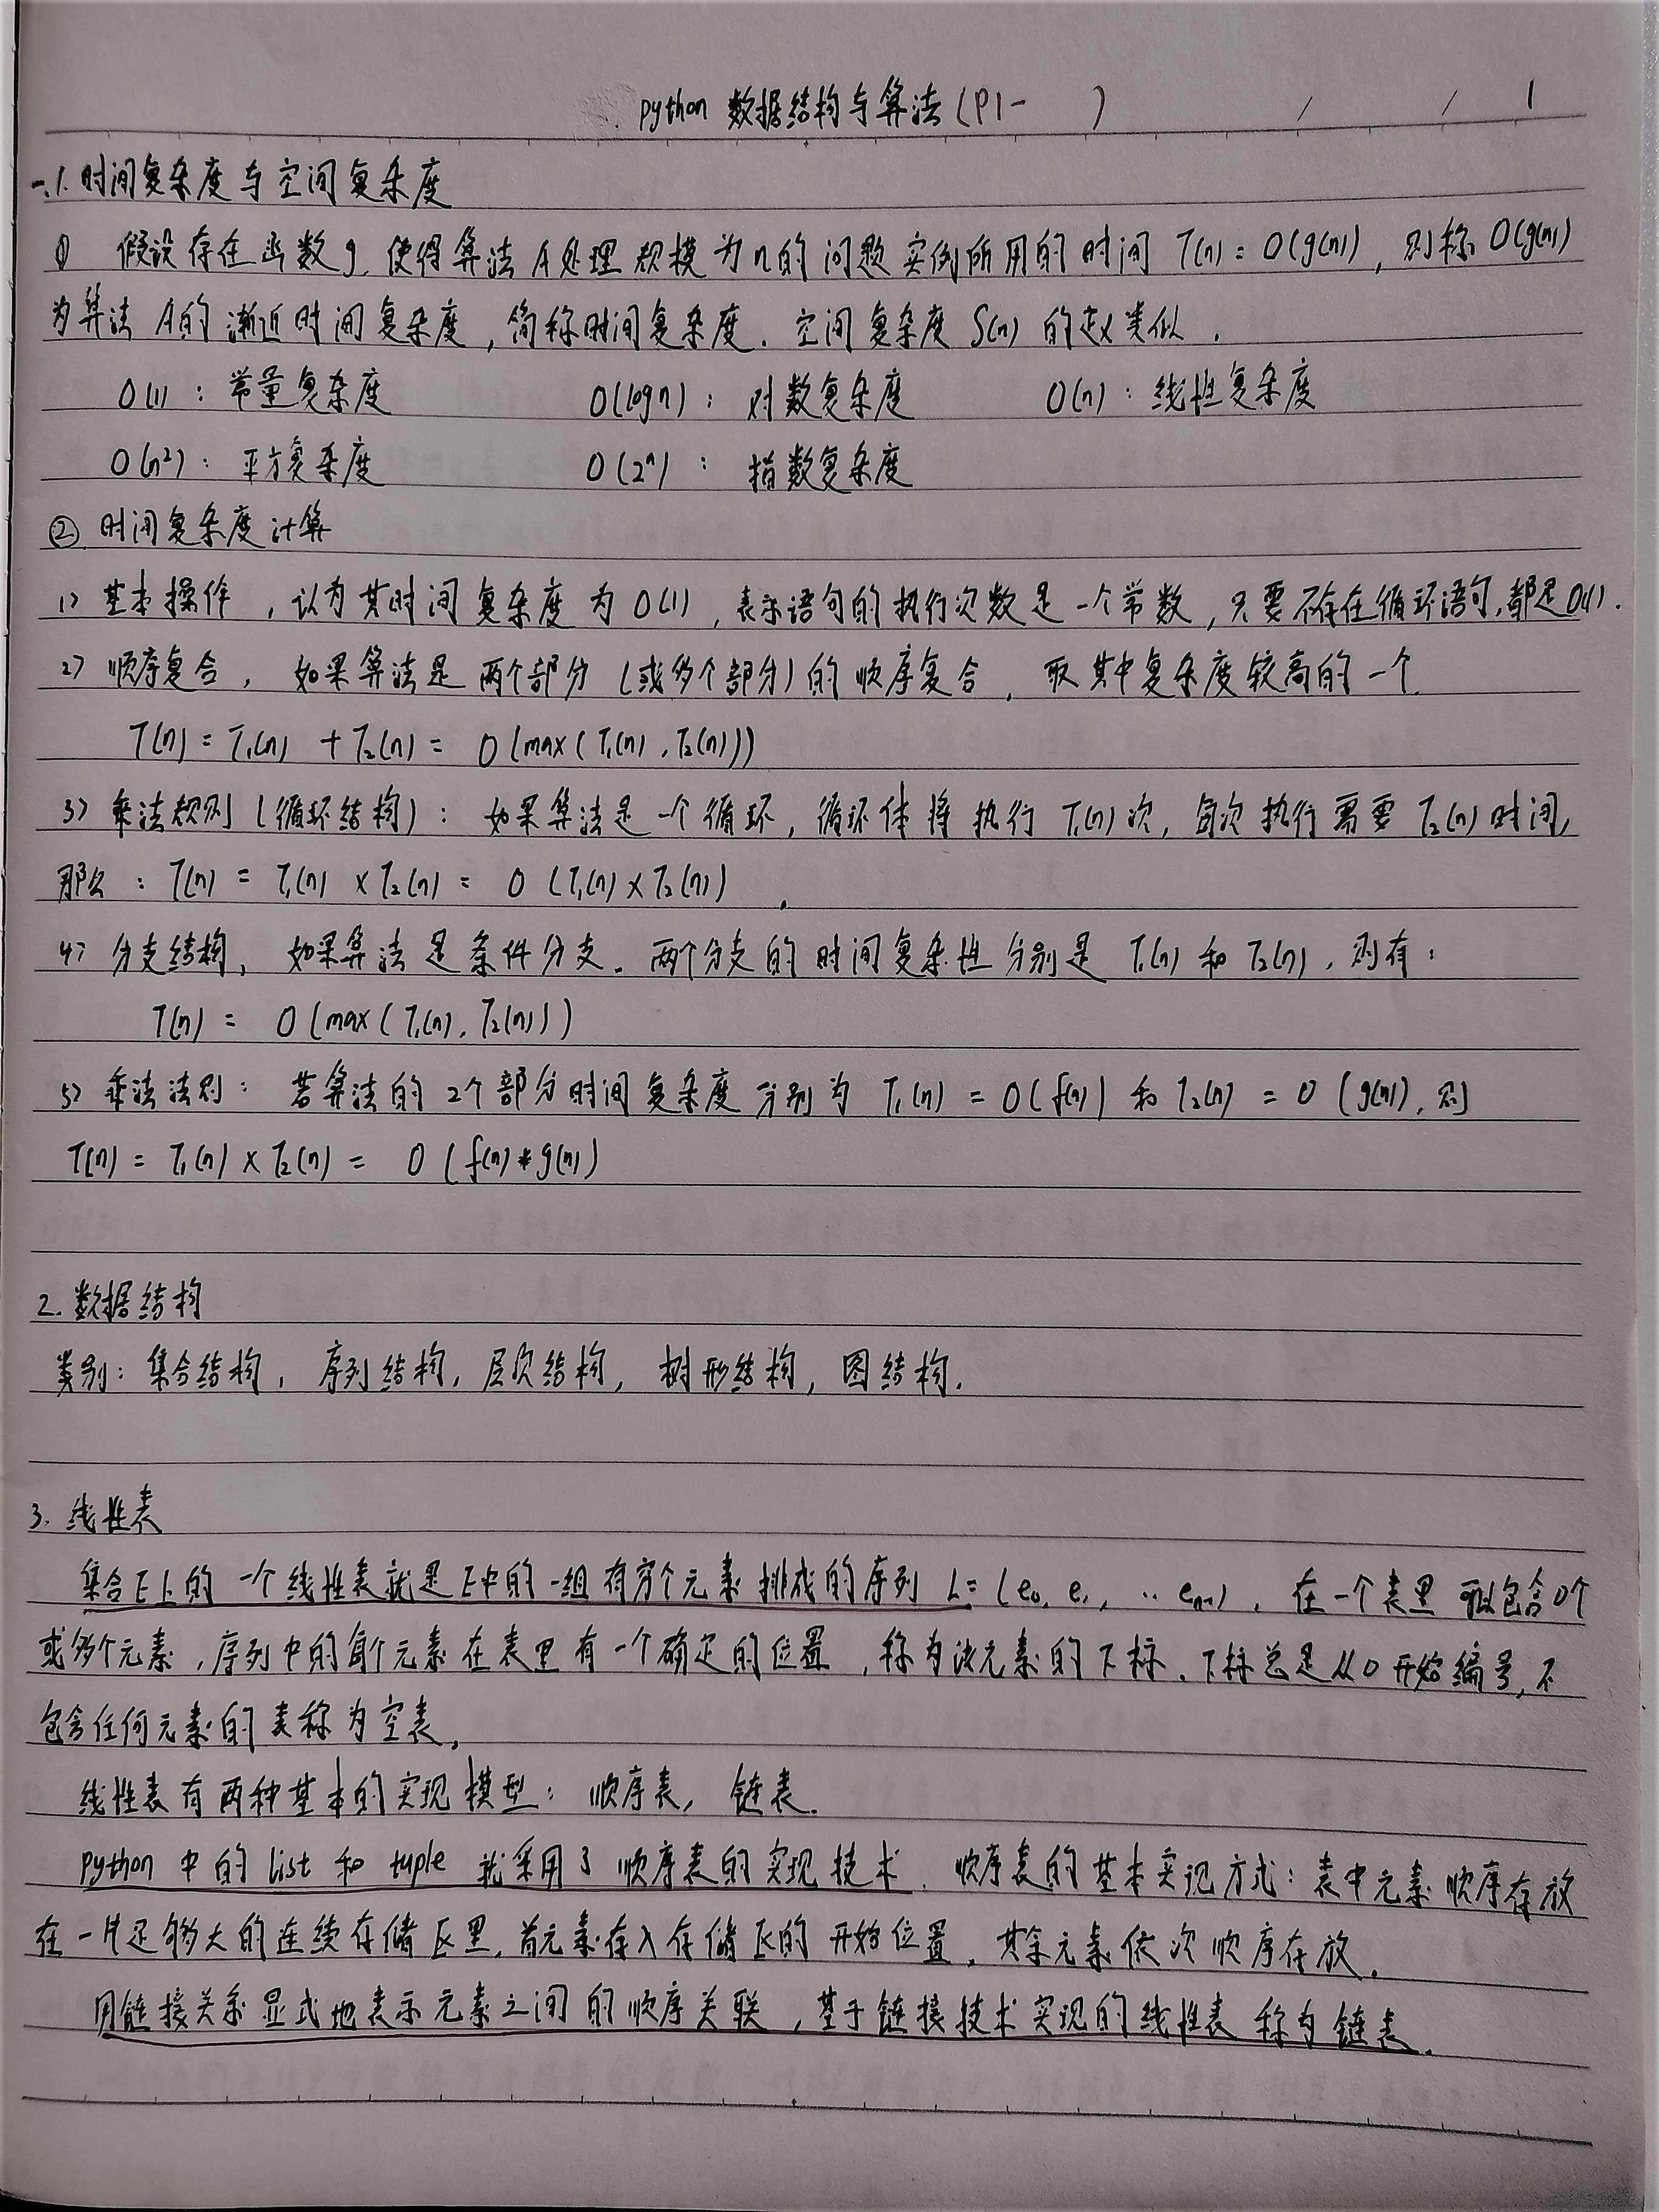 python 数据结构与算法(P1- ) / / 1
一、1. 时间复杂度与空间复杂度
① 假设存在函数g, 使得算法A处理规模为n的问题实例所用的时间 T(n) = O(g(n)), 则称 O(g(n))
为算法A的渐近时间复杂度, 简称时间复杂度. 空间复杂度 S(n) 的定义类似.
O(1): 常量复杂度 O(logn): 对数复杂度 O(n): 线性复杂度
O(n²): 平方复杂度 O(2ⁿ): 指数复杂度
② 时间复杂度计算
1> 基本操作, 认为其时间复杂度为 O(1), 表示语句的执行次数是一个常数, 只要不存在循环语句, 都是O(1).
2> 顺序复合, 如果算法是两个部分(或多个部分)的顺序复合, 取其中复杂度较高的一个.
T(n) = T₁(n) + T₂(n) = O(max(T₁(n), T₂(n)))
3> 乘法规则(循环结构): 如果算法是一个循环, 循环体将执行 T₁(n)次, 每次执行需要 T₂(n)时间,
那么: T(n) = T₁(n) × T₂(n) = O(T₁(n) × T₂(n)).
4> 分支结构, 如果算法是条件分支. 两个分支的时间复杂性分别是 T₁(n) 和 T₂(n), 则有:
T(n) = O(max(T₁(n), T₂(n)))
5> 乘法法则: 若算法的2个部分时间复杂度分别为 T₁(n) = O(f(n)) 和 T₂(n) = O(g(n)), 则
T(n) = T₁(n) × T₂(n) = O(f(n)*g(n))
2. 数据结构
类别: 集合结构, 序列结构, 层次结构, 树形结构, 图结构.
3. 线性表
集合E上的一个线性表就是E中的一组有穷个元素排成的序列 L=(e₀, e₁, ‥ eₙ₋₁), 在一个表里可以包含0个
或多个元素, 序列中的每个元素在表里有一个确定的位置, 称为该元素的下标. 下标总是从0开始编号, 不
包含任何元素的表称为空表,
线性表有两种基本的实现模型: 顺序表, 链表.
python 中的 list 和 tuple 就采用了顺序表的实现技术. 顺序表的基本实现方式: 表中元素顺序存放
在一片足够大的连续存储区里, 首元素存入存储区的开始位置, 其余元素依次顺序存放.
用链接关系显式地表示元素之间的顺序关联, 基于链接技术实现的线性表称为链表.